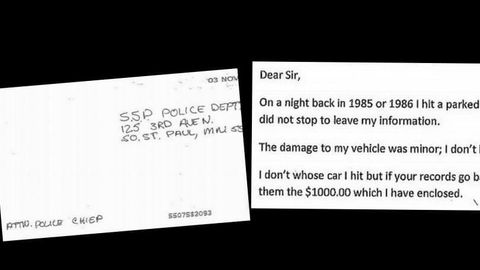 03 NOV
SSP POLICE DEPT
125 3RD AVE N.
SO. ST. PAUL, MN 55
ATTN. POLICE CHIEF
5507582093
Dear Sir,
On a night back in 1985 or 1986 I hit a parked
did not stop to leave my information.
The damage to my vehicle was minor; I don't
I don't whose car I hit but if your records go ba
them the $1000.00 which I have enclosed.